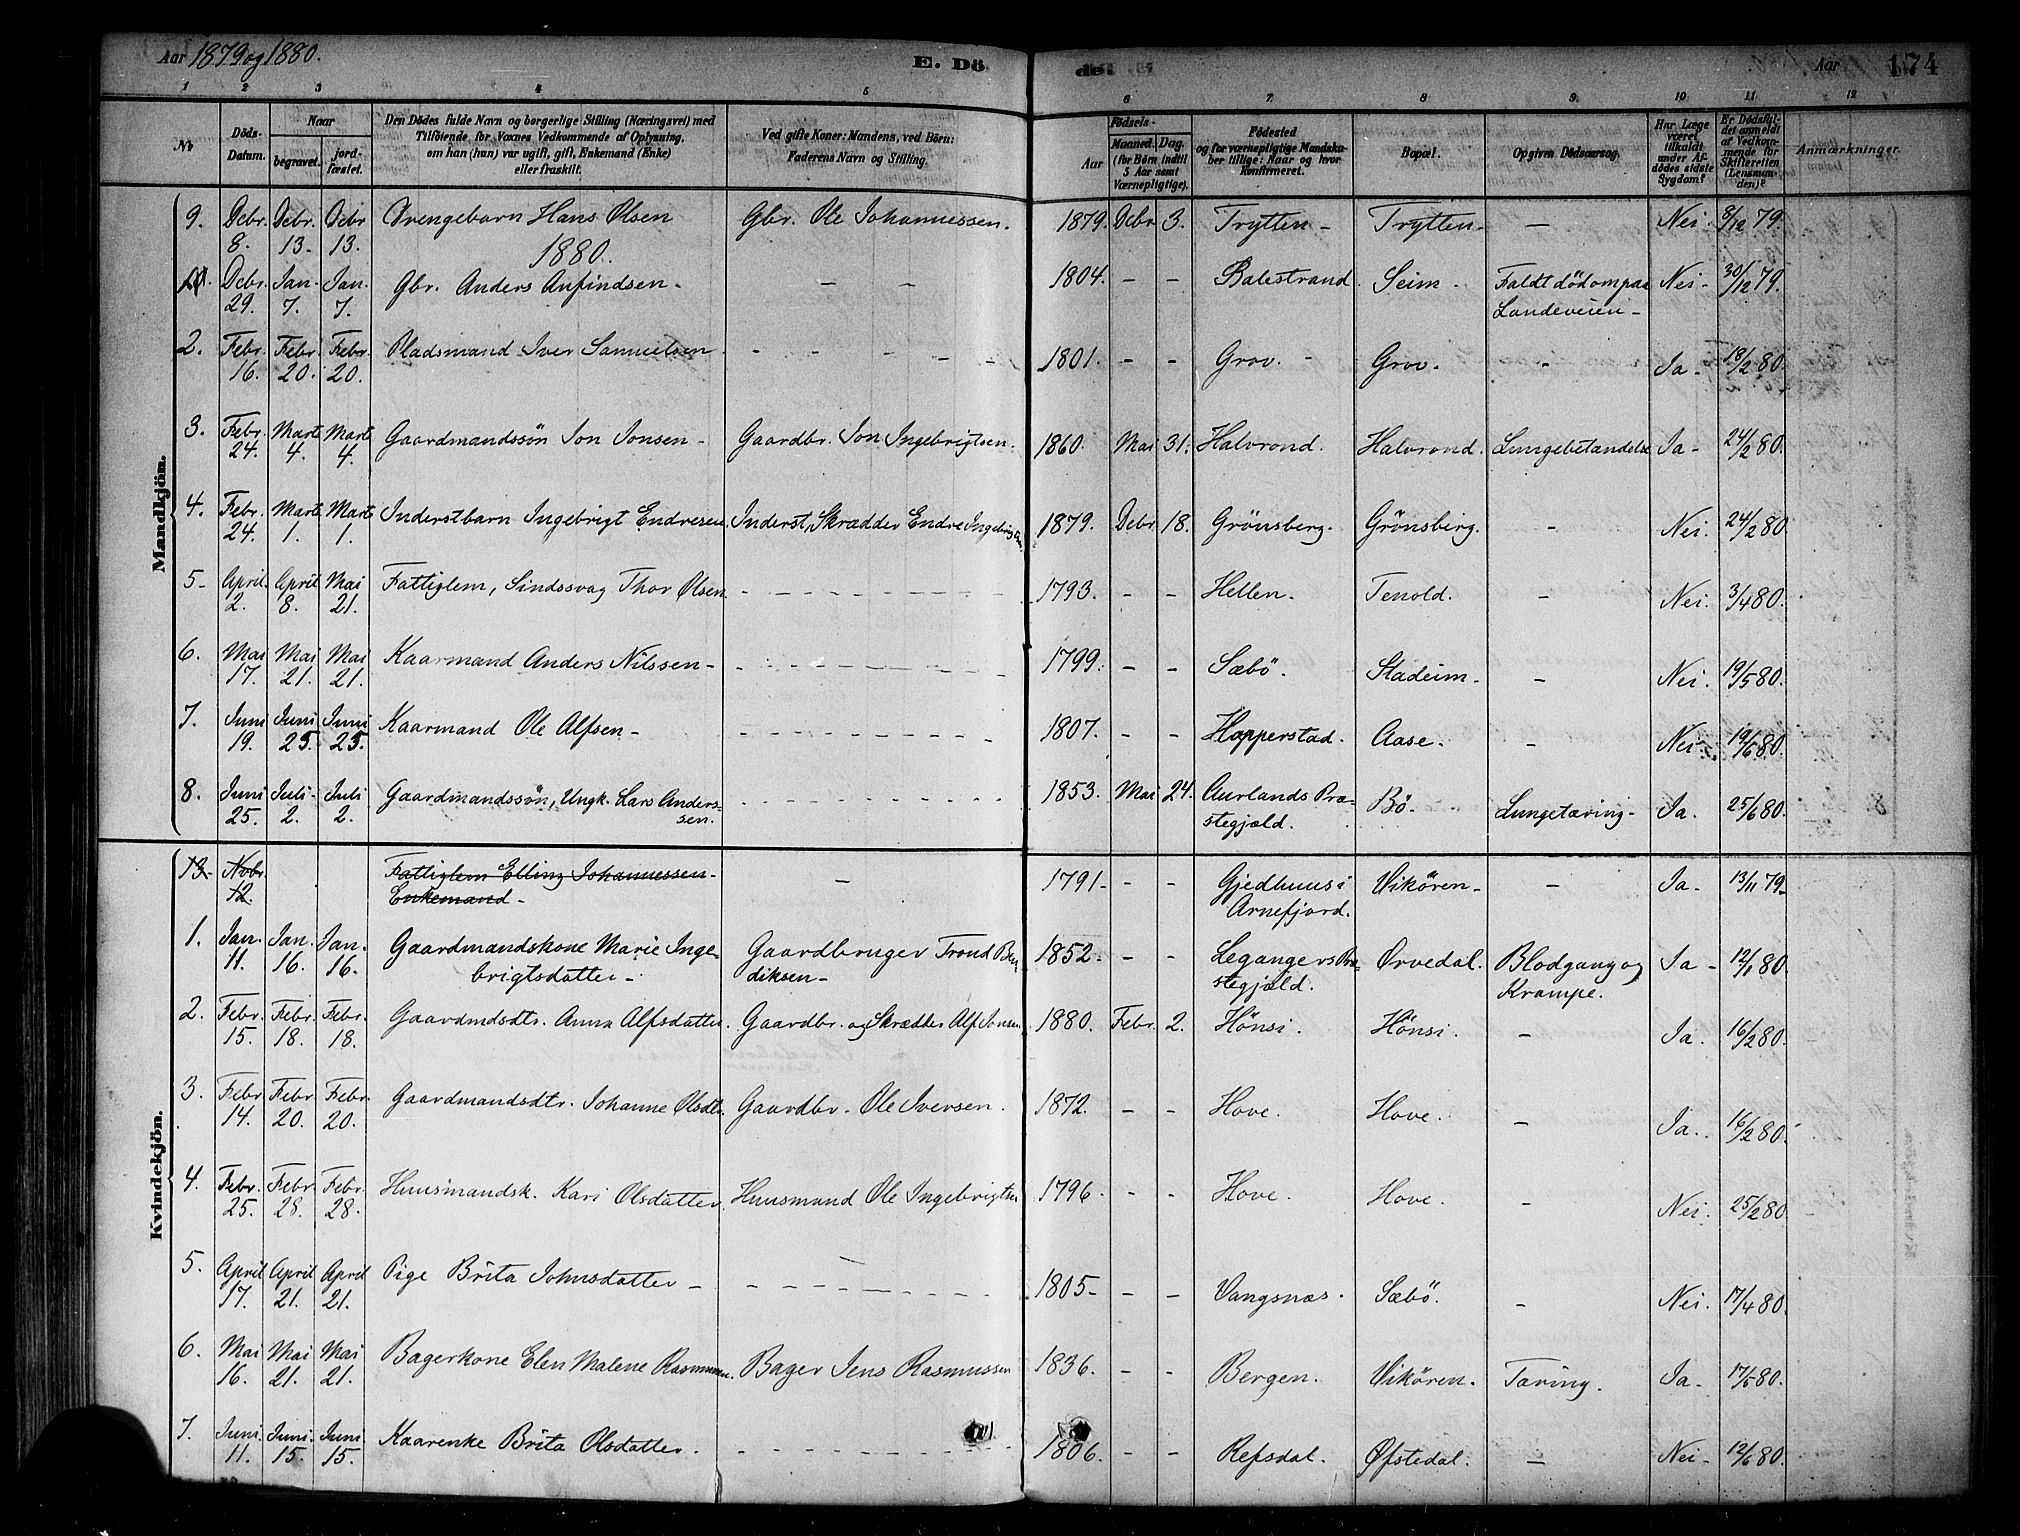 Aar 1879 og 1880. E. Dö de. Aar 174
1 2 3 4 5 6 7 8 9. 10 11 12
No
Döds-Datum.
Naar
begravet.
jordfæstet.
Den Dödes fulde Navn og borgerlige Stilling (Næringsvei) med
Tilföiende for Voxnes Vedkommende af Oplysning,
om han (hun) var ugift, gift, Enkemand (Enke)
eller fraskilt.
Ved gifte Koner: Mandens, ved Börn:
Faderens Navn og Stilling.
Födsels-
Aar
Maaned. Dag.
(for Börn indtil
5 Aar samt
Værnepligtige).
Födested
og for værnepligtige Mandska-
ber tillige: Naar og hvor
konfirmeret.
Bopæl.
Opgiven Dödsaarsag.
Har Læge
været
tilkaldt
under Af-
dödes sidste
Sygdom?
Er Dödsfal-
det anmeldt
af Vedkom-
mende for
Skifteretten
(Lensman-
den)?
Anmærkninger.
Mandkjön.
9. Debr. Debr. Debr Drengebarn Hans Olsen Gbr. Ole Johannessen. 1879. Debr 3. Trytten - Trytten - — Nei. 8/12 79.
8. 13. 13. 1880.
Debr. Jan. Jan. Gbr. Anders Anfindsen - — - 1804. - - Balestrand Seim - Faldt död om paa Nei - 30/12 79.
29. 7. 7. Landeveien -
2. Febr. Febr. Febr. Pladsmand Iver Samuelsen - - - - - 1801. - - Grov. - Grov. - Ja - 18/2 80.
16. 20. 20.
3. Febr. Marts Marts Gaardmandssön Jon Jonsen - Gaardbr. Jon Ingebrigtsen. 1860. Mai 31. Halvrond. Halvrond. Lungebetændelse Ja - 24/2 80.
24. 4. 4.
4. Febr. Marts Marts Inderstbarn Ingebrigt Endresen. Inderst, Skrædder Endre Ingebrigtsen. 1879. Debr 18. Grönsberg. Grönsberg. - Nei. 24/2 80.
24. 1. 1.
5 - April April Mai Fattiglem, Sindssvag Thor Olsen. - - - - 1793. - - Hellen. Tenold. - Nei. 3/4 80.
2. 8. 21.
6. Mai Mai Mai Kaarmand Anders Nilssen - - - - - 1799. - - Sæbö. Stadeim. - Nei. 19/5 80.
17. 21. 21.
7. Juni Juni Juni Kaarmand Ole Alfsen - - - - - 1807. - - Hopperstad. Aase. - Nei. 19/6 80.
19. 25. 25.
8. Juni Juli Juli Gaardmandssön, Ungk. Lars Anders- - - - - 1853. Mai 24. Aurlands Præ- Bö. Lungetæring - Ja. 25/6 80.
25. 2. 2. sen. stegjæld.
Kvindekjön.
13. Nobr. Fattiglem Elling Johannessen - — 1791 - - - Gjedhuus i Vikören - — Ja - 13/11 79 -
12. Enkemand - Arnefjord.
1. Jan. Jan. Jan. Gaardmandskone Marie Inge- Gaardbruger Trond Ben 1852. - - Leganger s Præ- Ørvedal. Blodgang og Ja - 12/1 80.
11. 16. 16. brigtsdatter - diksen - stegjæld. Krampe.
2. Febr. Febr. Febr. Gaardmdsdtr. Anna Alfsdatter. Gaardbr. og Skrædder Alf Jonsen 1880. Febr. 2. Hönsi. Hönsi. - Ja. 16/2 80.
15. 18. 18.
3. Febr Febr. Febr. Gaardmandsdtr. Johanne Olsdtr. Gaardbr. Ole Iversen. 1872. - - Hove. Hove. - Ja. 16/2 80.
14. 20. 20.
4. Febr. Febr. Febr. Huusmandsk. Kari Olsdatter. Huusmand Ole Ingebrigtsen 1796. - - Hove. Hove. - Nei. 25/2 80.
25. 28. 28.
5. April April April Pige Brita Johnsdatter - - - - - 1805 - - - Vangsnæs. Sæbö. - Nei. 17/4 80.
17. 21. 21.
6. Mai Mai Mai Bagerkone Elen Malene Rasmussen. Bager Jens Rasmussen 1836. - - Bergen. Vikören. Tæring. Ja. 17/5 80.
16. 21. 21.
7. Juni. Juni. Juni Kaarenke Brita Olsdatter. - - - - 1806. - - Refsdal. Øfstedal. — Nei - 12/6 80.
11. 15. 15.